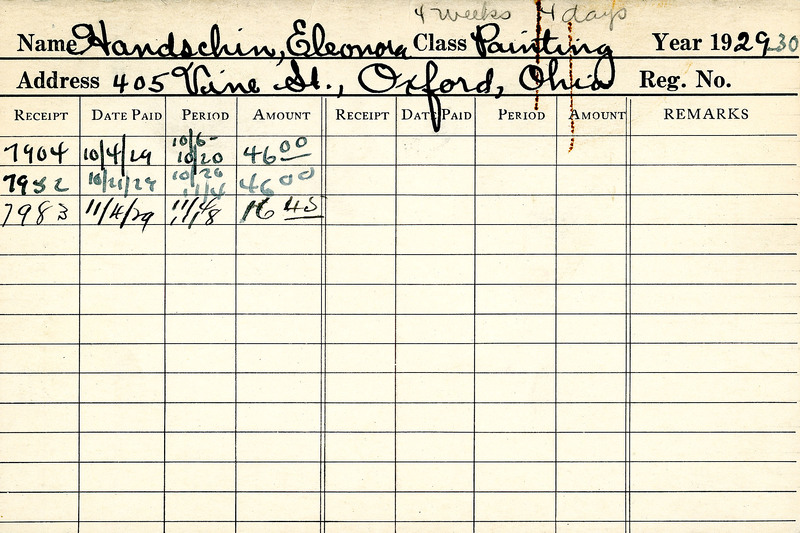 4 weeks 4 days
Name Handschin, Eleonora Class Painting Year 1929-30
Address 405 Vine St., Oxford, Ohio Reg. No.
RECEIPT DATE PAID PERIOD AMOUNT RECEIPT DATE PAID PERIOD AMOUNT REMARKS
10/6-
7904 10/4/29 10/20 46 00
10/20
7952 10/21/29 11/4 46 00
11/4
7983 11/4/29 11/18 16 45